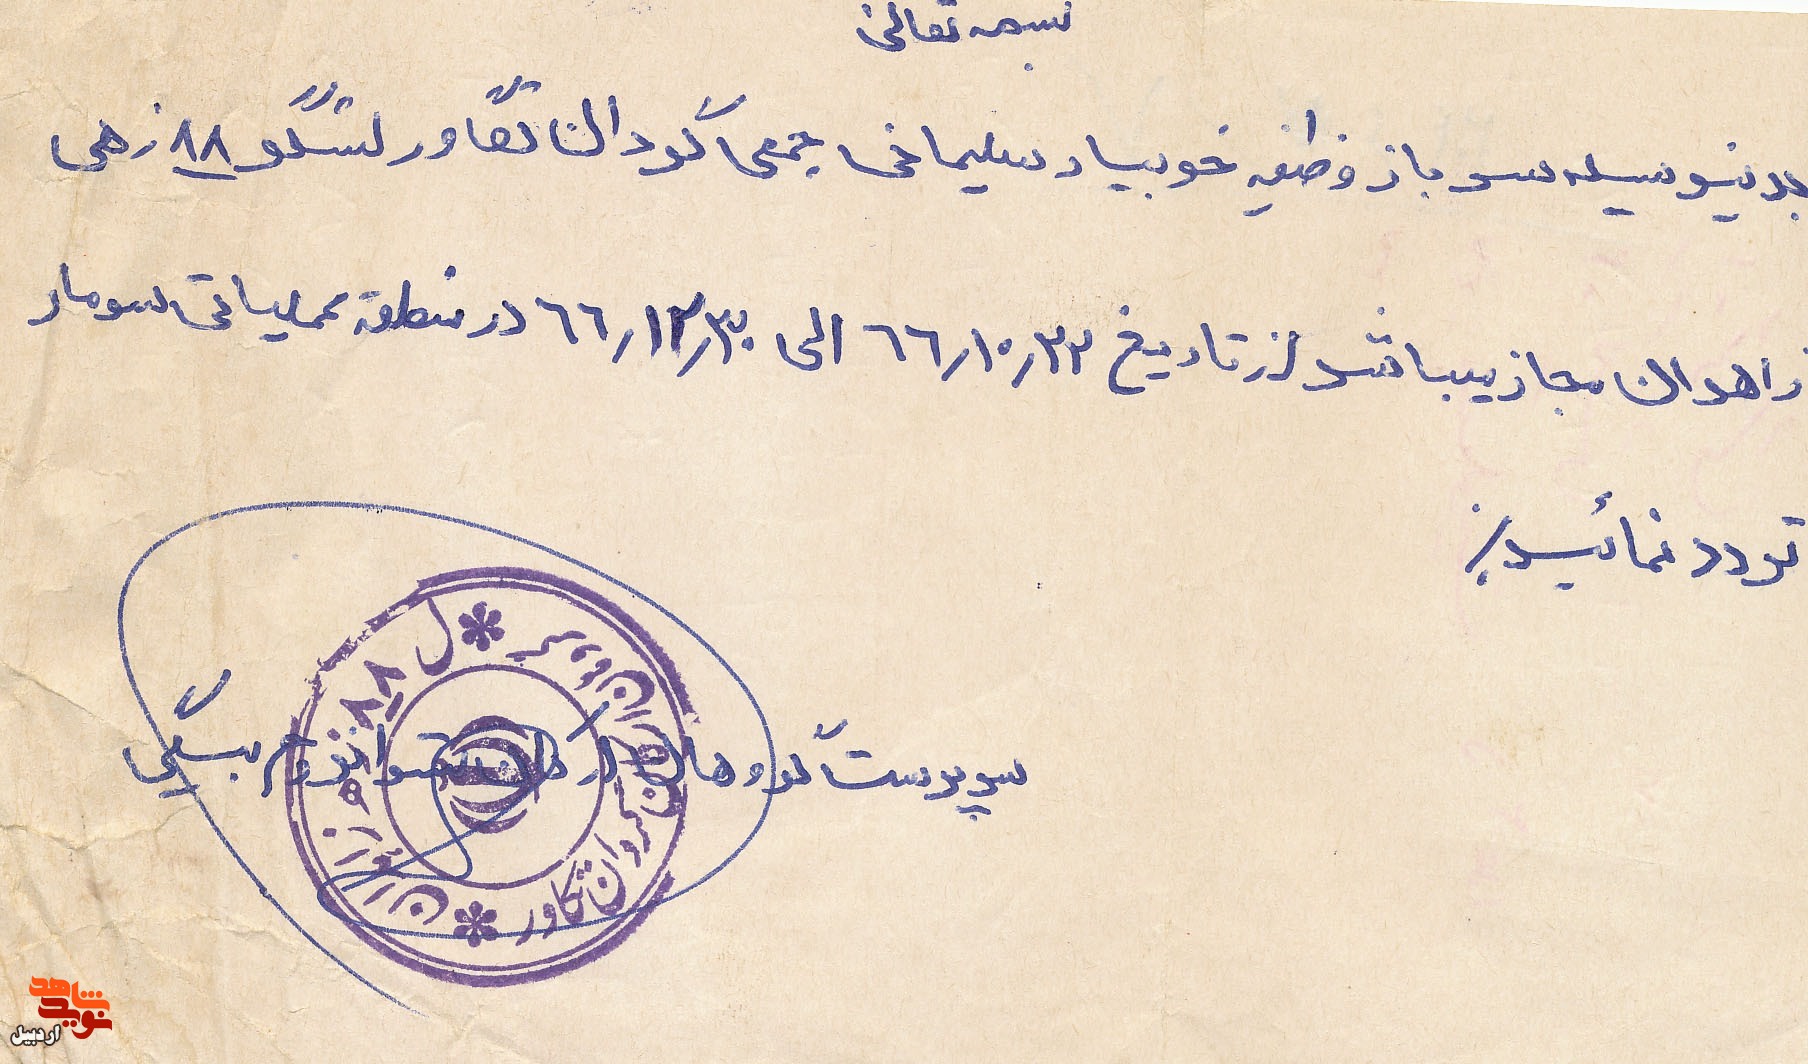 بسمه تعالی
بدینوسیله سرباز وظیفه خوبیار سلیمانی جمعی گردان تکاور لشگر ۸۸ زرهی
زاهدان مجاز میباشد از تاریخ ۶۶٫۱۰٫۲۳ الی ۶۶٫۱۲٫۳۰ در منطقه عملیاتی سومار
تردد نمائید
سرپرست گروهان ارکان ستوانیکم بسکی
ل ۸۸ زرهی زاهدان
گردان تکاور
نوید شاهد
اردبیل